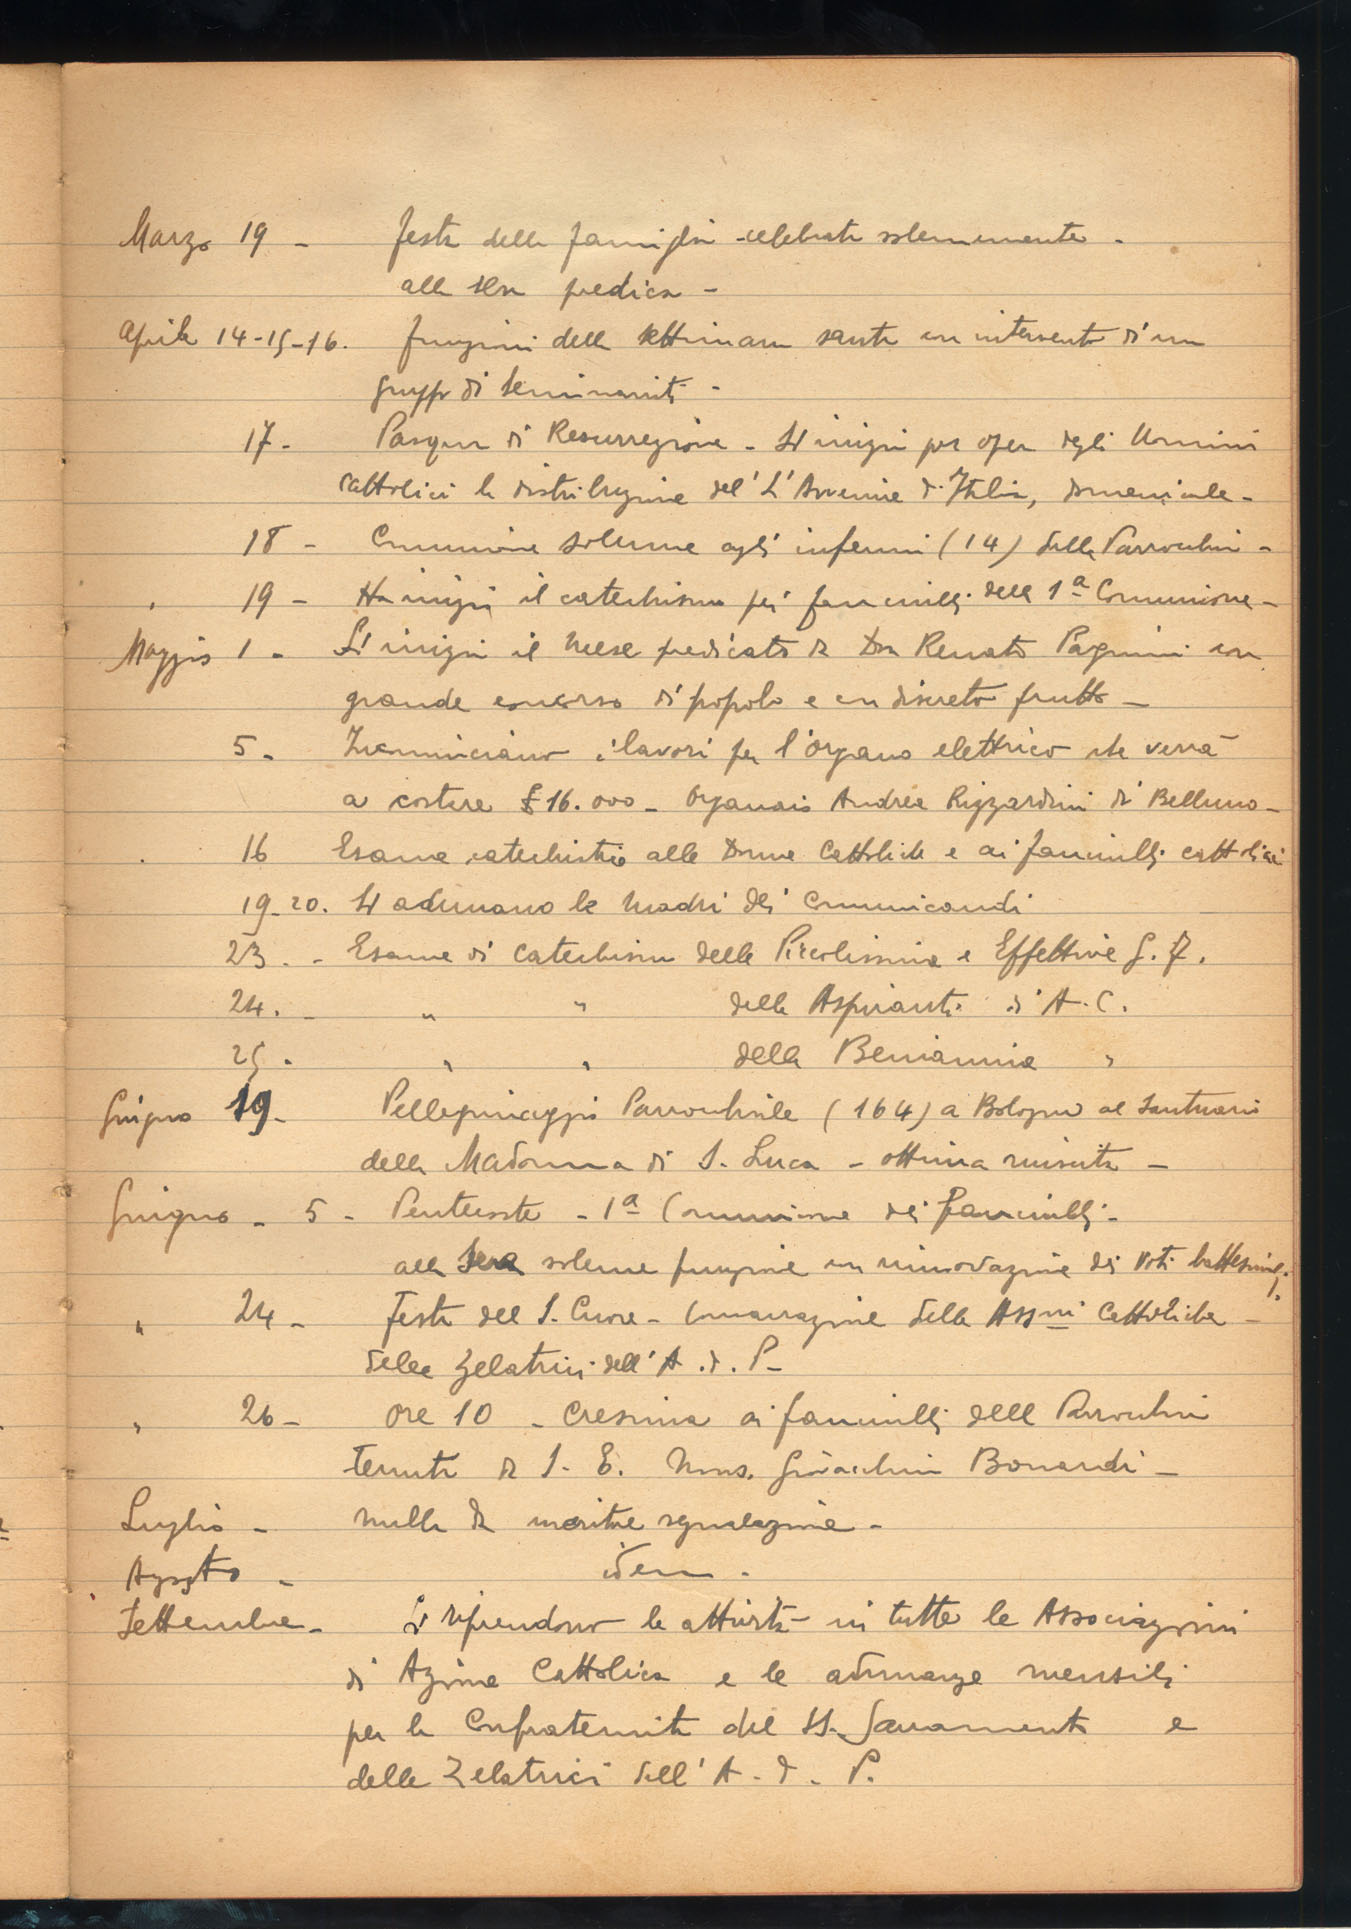 Marzo 19 - festa della famiglia celebrata solennemente -
alla sera predica -
Aprile 14-15-16. funzioni della settimana santa con intervento di un
gruppo di seminaristi -
17 - Pasqua di Resurrezione - Si inizia per opera degli Uomini
cattolici la distribuzione del' L'Avvenire d'Italia, domenicale -
18 - Comunione solenne agli infermi (14) della Parrocchia -
" 19 - Ha inizio il catechismo pei fanciulli della 1ª Comunione -
Maggio 1 - Si inizia il mese predicato da Don Renato Pagnini con
grande concorso di popolo e con discreto frutto -
5 - Incominciano i lavori per l'organo elettrico che verrà
a costare £ 16.000 - Organaio Andrea Rizzardini di Belluno -
16 Esame catechistico alle Donne Cattoliche e ai fanciulli cattolici
19-20. Si adunano le madri dei Comunicandi
23 . - Esame di Catechismo delle Piccolissime e Effettive G. F.
24. - " " delle Aspiranti di A.C.
25 - " " delle Beniamine "
Giugno 19 - Pellegrinaggio Parrocchiale (164) a Bologna al Santuario
della Madonna di S. Luca - ottima riuscita -
Giugno - 5 - Pentecoste - 1ª Comunione dei fanciulli -
alla sera solenne funzione con rinnovazione dei voti battesimali.
" 24 - Festa del S. Cuore - Consacrazione delle Assni Cattoliche -
delle Zelatrici dell'A. d. P -
" 26 - Ore 10 - Cresima ai fanciulli della Parrocchia
tenuta da S. E. Mons. Gioacchino Bonardi -
Luglio - nulla da meritare segnalazione -
Agosto - idem -
Settembre - Si riprendono le attività in tutte le Associazioni
di Azione Cattolica e le adunanze mensili
per la Confraternita del SS. Sacramento e
delle Zelatrici dell'A. d. P.